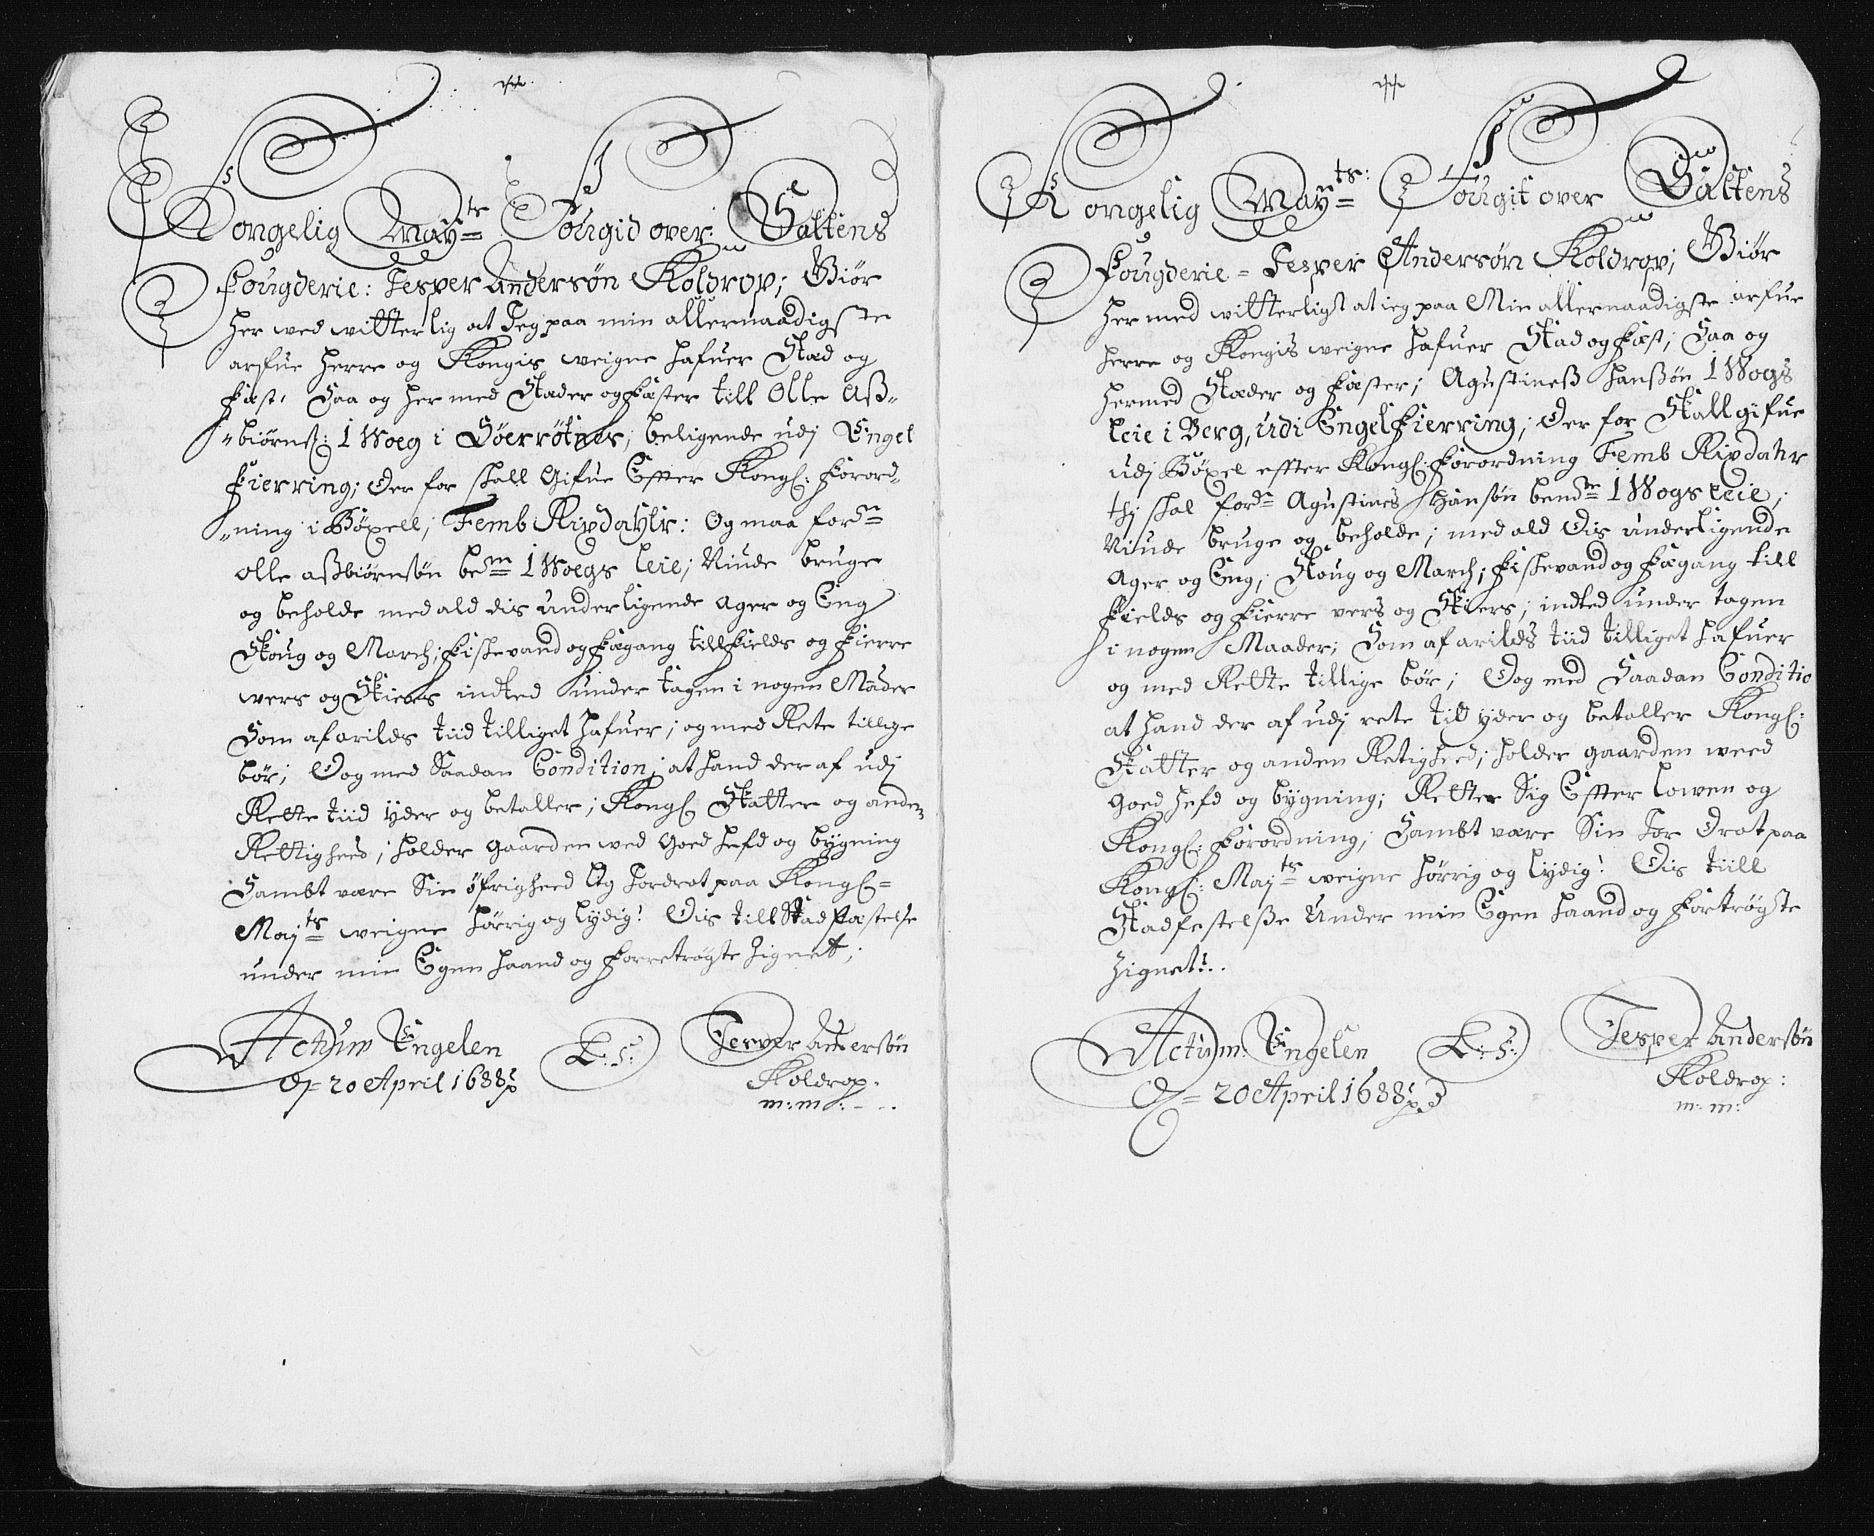 Kongelig Maytz Fougid over Saltens
Fougderie: Jesper Andersøn Koldrop; Giør
her med vitterlig at Jeg paa min allernaadigste
arfue Herre og Kongis weigne hafuer Stæd og
Fæst, Saa og her med Stæder og Fæster till Olle Aß-
biørnß: 1 Woeg i Søerrøtnes, beligende udj Engel
Fierring; Der for skall Gifue Effter Kongl: Forord-
ning i Böxell, Femb Rixdaylr: og maa fordn
olle aßbiørnsøn bemte 1 Woegs leie; Niude bruge
og beholde med ald dis underligende ager og Eng
Skoug og March; Fiskevand og Fægang till Fields og Fierre
wers og Skiers indted under tagen i nogen Måder
Som af arilds tiid tilliget hafuer; og med Rete tillige
bør; Dog med Saadan Condition, at hand der af udj
Rette tiid yder og betaller, Kongl Skatter og anden
Rettighed; holder gaarden ved Goed hefd og bygning
Sambt være Sin öfrigheed Og Jordrot paa Kongl=
Majts weigne hørrig og lydig! Dis till Stadfæstelse
under min Egen haand og Forretrøgte Zignet;
Actum Engelen
D= 20 April 1688
L: S:
Jesper Andersøn
Koldrop.
m:m:
Kongelig Mayts: Fougit over Saltens
Fougderie = Jesper Andersøn Koldrop; Giør
her med vitterligt at ieg paa Min allernaadigste arfue
herre og Kongis weigne hafuer Stæd og Fæst; Saa og
hermed Stæder og Fæster; Agustineß Hanßøn 1 Wogs
leie i Berg, udi Engel Fierring; Der for Skall gifue
udj Böxel effter Kongl: Forordning Femb Rixdahr
thj skal fordn Agustines Hansøn bemdte 1 Wogs leie,
Niude bruge og beholde; med ald Dis underligende
Ager og Eng, Skoug og March; Fiskevand og Fægang till
Fields og Fierre vers og Skiers; indted under tagen
i nogen Maader; Som af arilds tiid tilliget hafuer
og med Rette tillige bör; Dog med Saadan Conditio
at hand der af udj rete tid yder og betaller Kongl:
Skatter og anden Retighed; holder gaarden weed
Goed hefd og bygning; Retter Sig Effter lowen og
Kongl: Forordning; Sambt være Sin Jor Drot paa
Kongl: Majts weigne hørrig og lydig! Dis tiill
Stadfestelße Under min Egen haand og Fortrøgte
Zignet!..
Actum: Engelen
D= 20 April 1688
L: S:
Jesper Andersøn
Koldrop:
m: m: